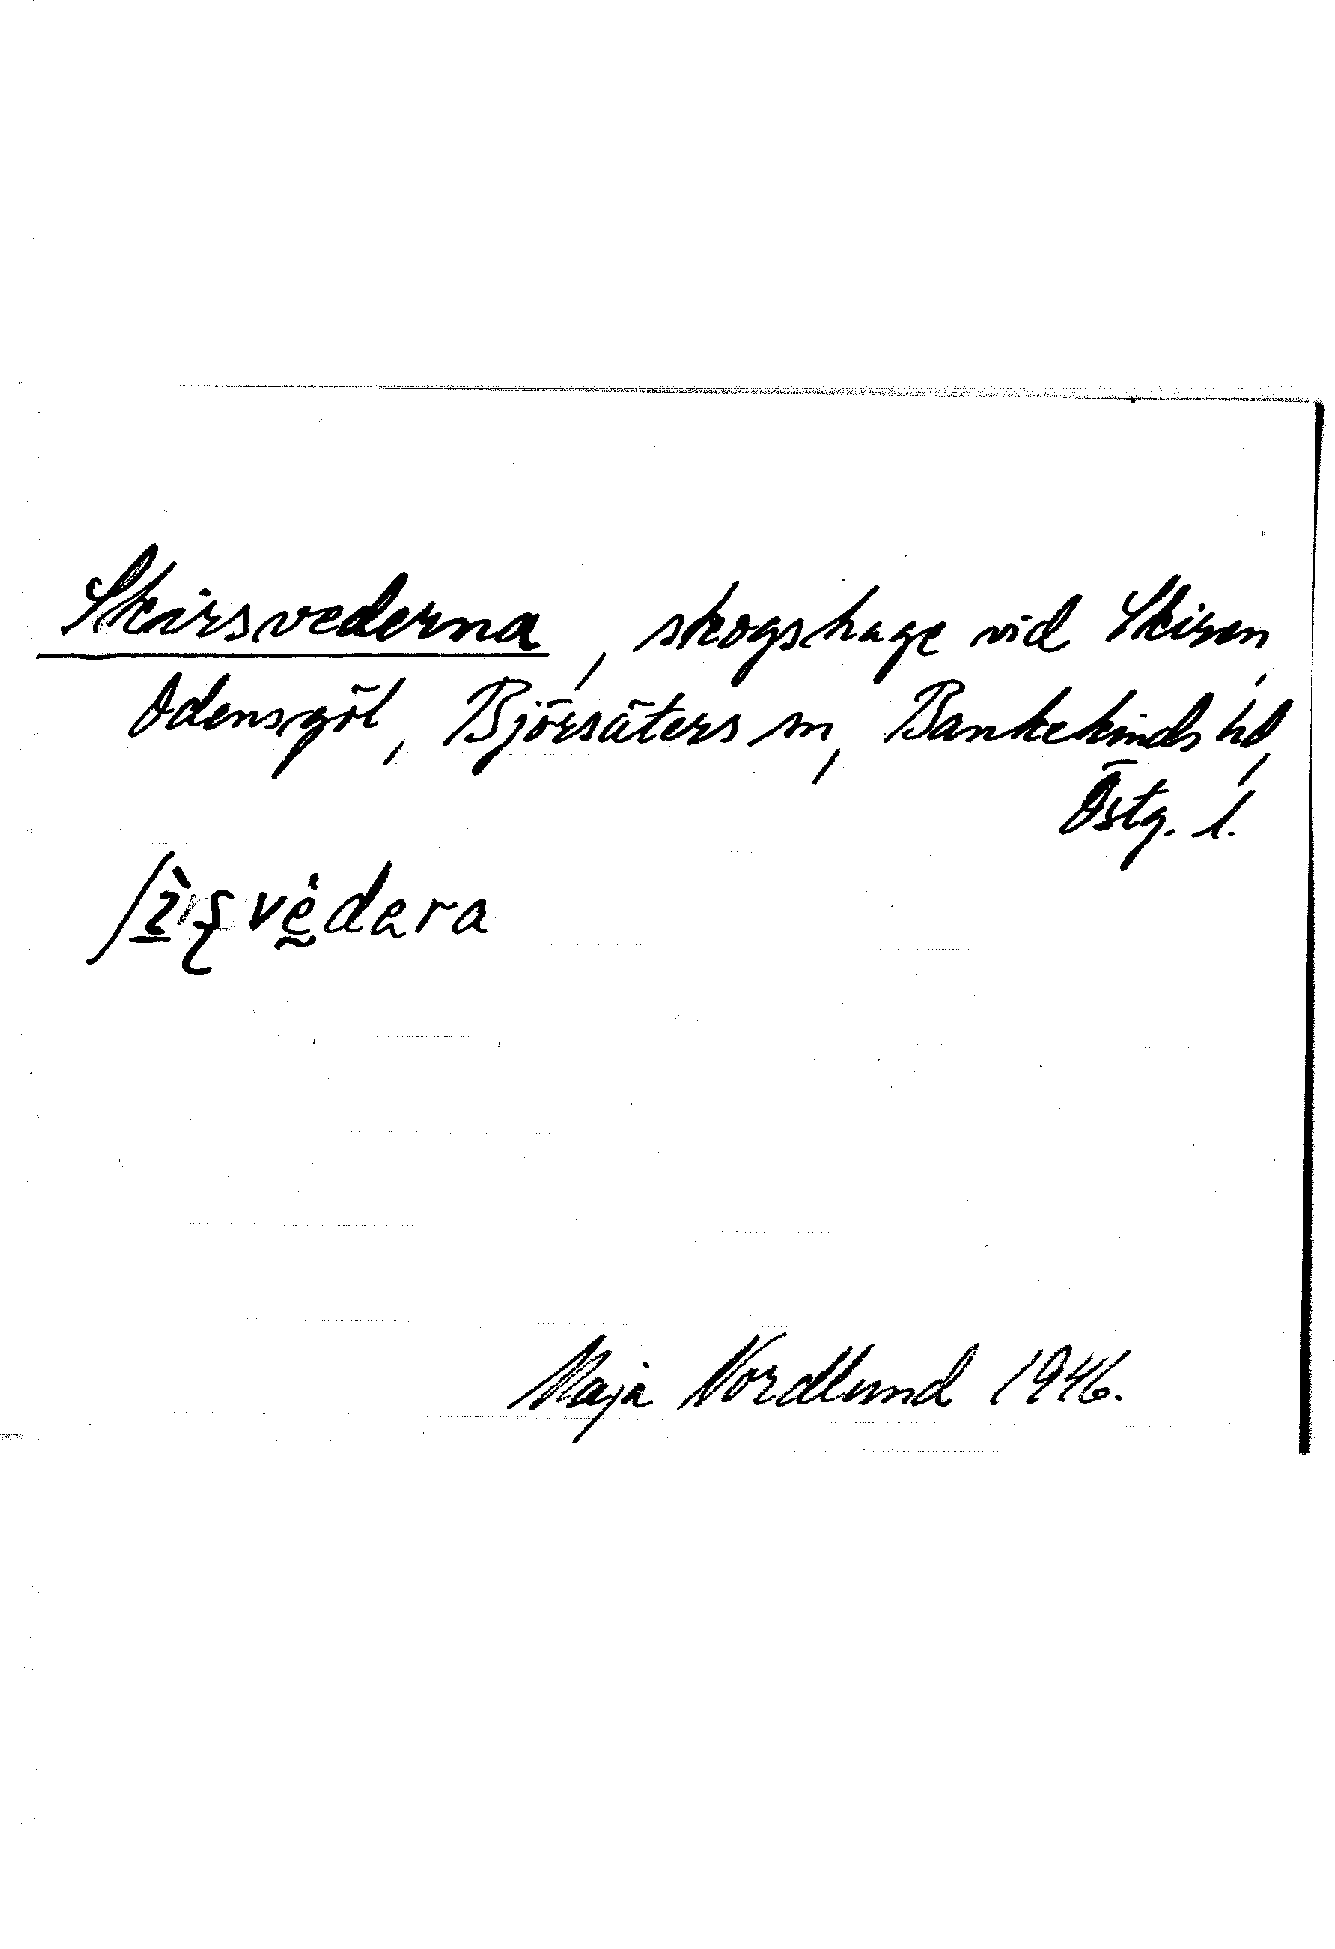 Skirsvederna, skogshage vid Skiren,
Odensgöl, Björsäters sn, Bankekinds hd,
Östg. l.
ʃì̱ʂvėdara
Maja Nordlund 1946.